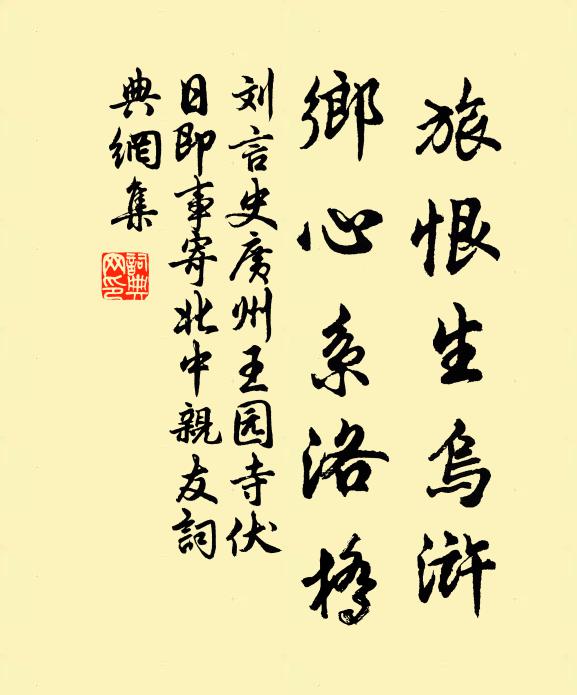 旅恨生烏滸
鄉心系洛橋
刘言史廣州王园寺伏
日即事寄北中親友詞
典網集
詞典網印